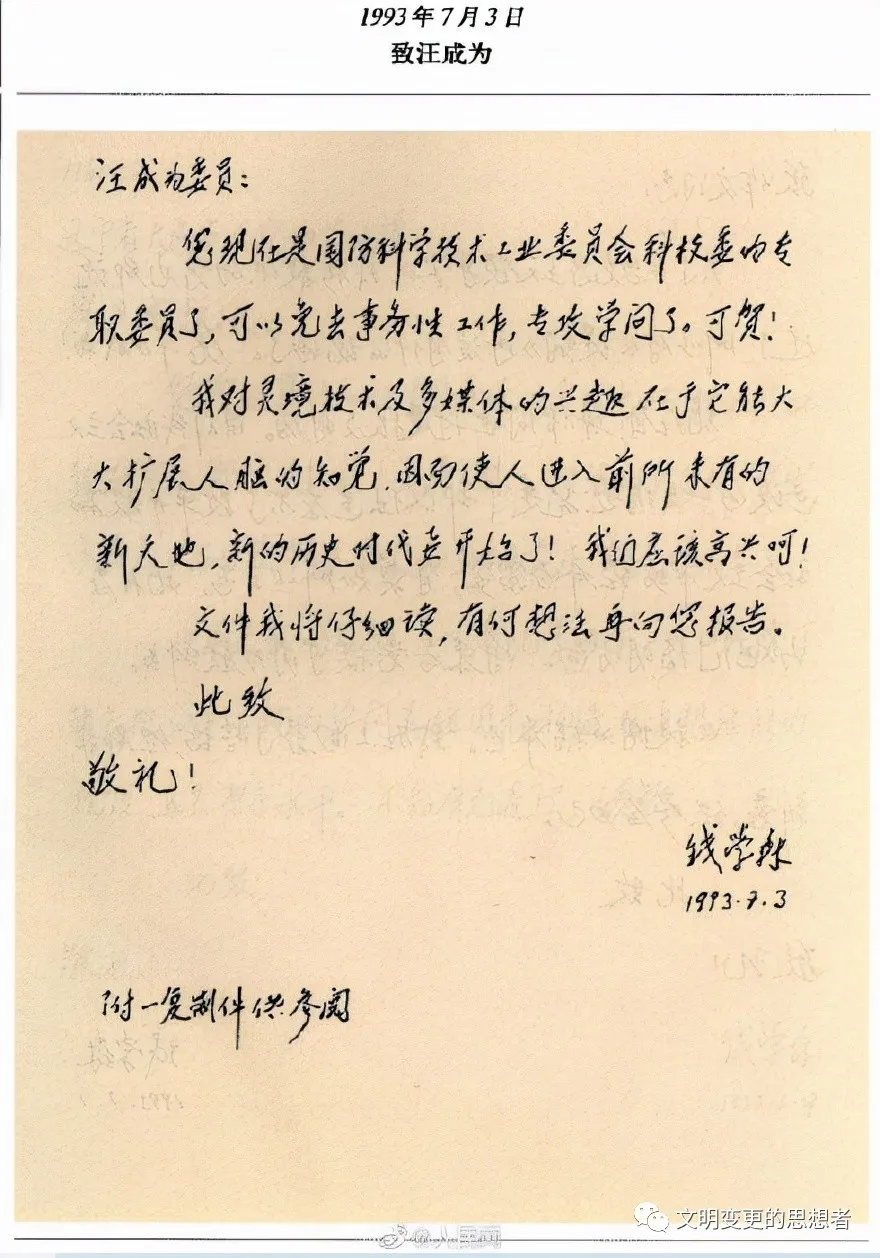 1993年7月3日
致汪成为
汪成为委员：
您现在是国防科学技术工业委员会科技委的专
职委员了，可以免去事务性工作，专攻学问了。可贺！
我对灵境技术及多媒体的兴趣在于它能大
大扩展人脑的知觉，因而使人进入前所未有的
新天地，新的历史时代要开始了！我们应该高兴呵！
文件我将仔细读，有何想法再向您报告。
此致
敬礼！
钱学森
1993.7.3
附一复制件供参阅
@人民网
文明变更的思想者